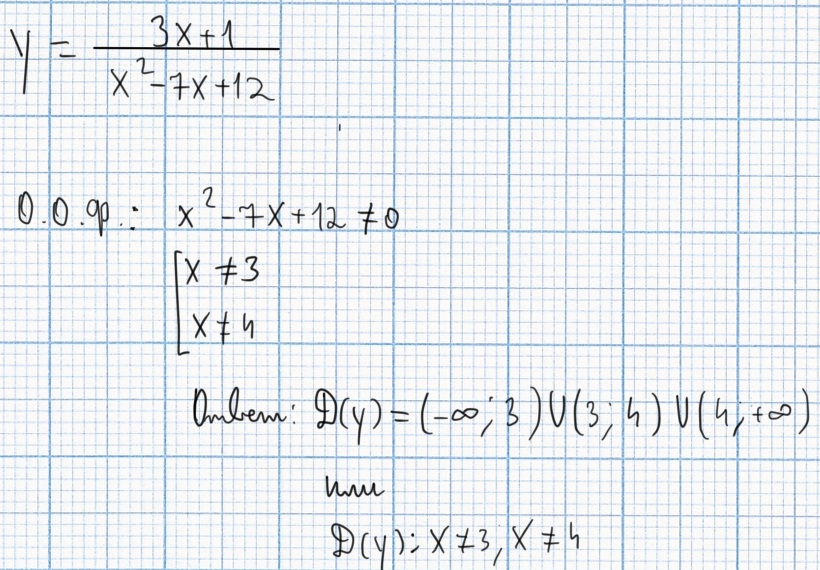 y = (3x+1)/(x²-7x+12)
О.О.Ф.: x²-7x+12 ≠ 0
[x ≠ 3
x ≠ 4
Ответ: D(y) = (-∞; 3) ∪ (3; 4) ∪ (4; +∞)
или
D(y): x ≠ 3, x ≠ 4